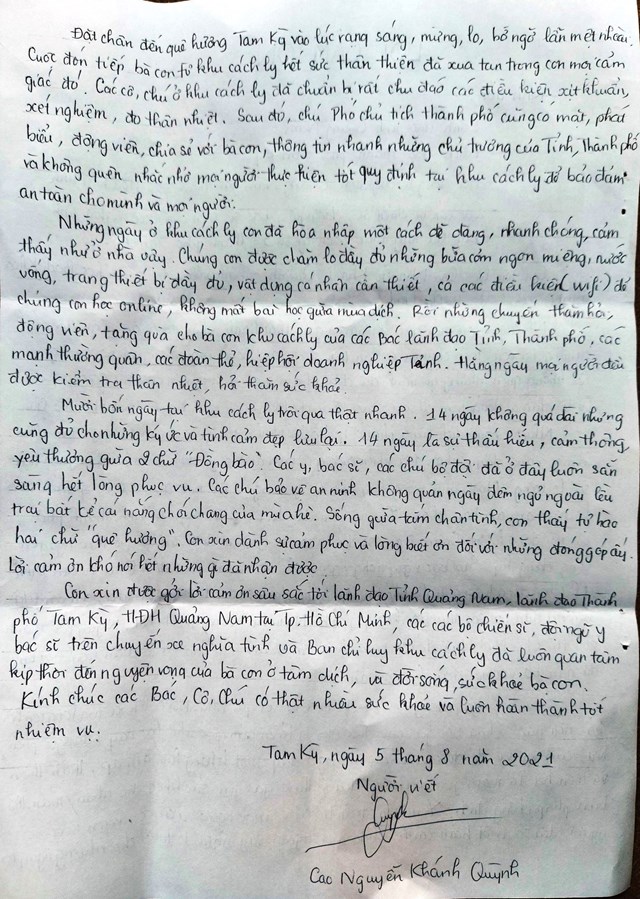 Đặt chân đến quê hương Tam Kỳ vào lúc rạng sáng, mừng, lo, bỡ ngỡ lẫn mệt nhoài.
Cuộc đón tiếp bà con từ khu cách ly hết sức thân thiện đã xua tan trong con mọi cảm
giác đó. Các cô, chú ở khu cách ly đã chuẩn bị rất chu đáo các điều kiện xịt khuẩn,
xét nghiệm, đo thân nhiệt. Sau đó, chú Phó chủ tịch thành phố cũng có mặt, phát
biểu, động viên, chia sẻ với bà con, thông tin nhanh những chủ trương của Tỉnh, Thành phố
và không quên nhắc nhở mọi người thực hiện tốt quy định tại khu cách ly để bảo đảm
an toàn cho mình và mọi người.
Những ngày ở khu cách ly con đã hòa nhập một cách dễ dàng, nhanh chóng, cảm
thấy như ở nhà vậy. Chúng con được chăm lo đầy đủ những bữa cơm ngon miệng, nước
uống, trang thiết bị đầy đủ, vật dụng cá nhân cần thiết, cả các điều kiện (wifi) để
chúng con học online, không mất bài học giữa mùa dịch. Rồi những chuyến thăm hỏi,
động viên, tặng quà cho bà con khu cách ly của các Bác lãnh đạo Tỉnh, Thành phố, các
mạnh thường quân, các đoàn thể, hiệp hội doanh nghiệp Tỉnh. Hằng ngày mọi người đều
được kiểm tra thân nhiệt, hỏi thăm sức khoẻ.
Mười bốn ngày tại khu cách ly trôi qua thật nhanh. 14 ngày không quá dài nhưng
cũng đủ cho những ký ức và tình cảm đẹp lưu lại. 14 ngày là sự thấu hiểu, cảm thông,
yêu thương giữa 2 chữ "Đồng bào". Các y, bác sĩ, các chú bộ đội đã ở đây luôn sẵn
sàng hết lòng phục vụ. Các chú bảo vệ an ninh không quản ngày đêm ngủ ngoài lều
trại bất kể cái nắng chói chang của mùa hè. Sống giữa tấm chân tình, con thấy tự hào
hai chữ "quê hương". Con xin dành sự cảm phục và lòng biết ơn đối với những đóng góp ấy.
Lời cảm ơn khó nói hết những gì đã nhận được
Con xin được gởi lời cảm ơn sâu sắc tới lãnh đạo Tỉnh Quảng Nam, lãnh đạo Thành
phố Tam Kỳ, HĐH Quảng Nam tại Tp. Hồ Chí Minh, các các bộ chiến sĩ, đội ngũ y
bác sĩ trên chuyến xe nghĩa tình và Ban chỉ huy khu cách ly đã luôn quan tâm
kịp thời đến nguyện vọng của bà con ở tâm dịch, và đời sống, sức khoẻ bà con.
Kính chúc các Bác, Cô, Chú có thật nhiều sức khoẻ và luôn hoàn thành tốt
nhiệm vụ.
Tam Kỳ, ngày 5 tháng 8 năm 2021
Người viết
Quỳnh
Cao Nguyễn Khánh Quỳnh